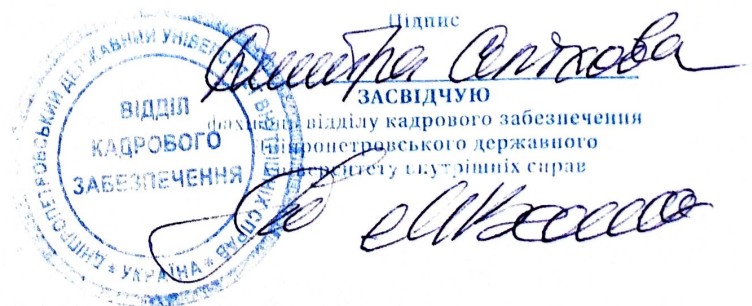 Підпис
Дмитра Селіхова
ЗАСВІДЧУЮ
фахівець відділу кадрового забезпечення
Дніпропетровського державного
університету внутрішніх справ
ДНІПРОПЕТРОВСЬКИЙ ДЕРЖАВНИЙ УНІВЕРСИТЕТ ВНУТРІШНІХ СПРАВ
* УКРАЇНА *
ВІДДІЛ
КАДРОВОГО
ЗАБЕЗПЕЧЕННЯ